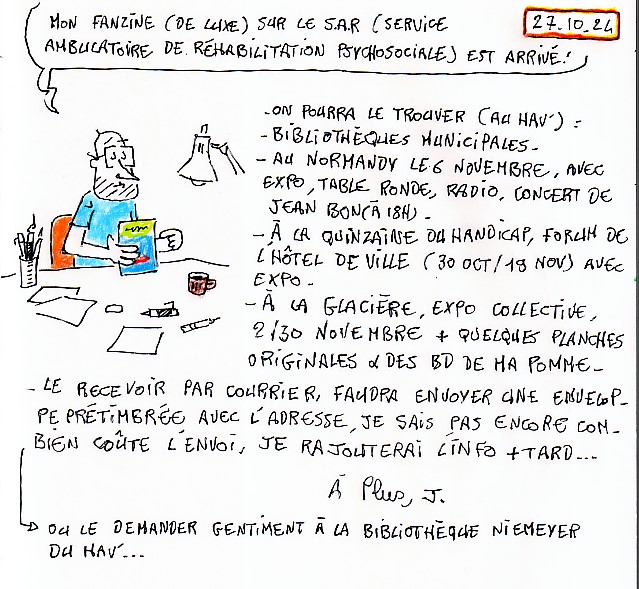 MON FANZINE (DE LUXE) SUR LE S.A.R (SERVICE
AMBULATOIRE DE RÉHABILITATION PSYCHOSOCIALE) EST ARRIVÉ!
27.10.24
- ON POURRA LE TROUVER (AU HAV') :
- BIBLIOTHÈQUES MUNICIPALES -
- AU NORMANDY LE 6 NOVEMBRE, AVEC
EXPO, TABLE RONDE, RADIO, CONCERT DE
JEAN BON (À 18H) -
- À LA QUINZAINE DU HANDICAP, FORUM DE
L'HÔTEL DE VILLE (30 OCT/18 NOV) AVEC
EXPO -
- À LA GLACIÈRE, EXPO COLLECTIVE,
2/30 NOVEMBRE + QUELQUES PLANCHES
ORIGINALES & DES BD DE MA POMME -
- LE RECEVOIR PAR COURRIER, FAUDRA ENVOYER UNE ENVELOP-
PE PRÉTIMBRÉE AVEC L'ADRESSE, JE SAIS PAS ENCORE COM-
BIEN COÛTE L'ENVOI, JE RAJOUTERAI L'INFO + TARD...
À Plus, J.
OU LE DEMANDER GENTIMENT À LA BIBLIOTHÈQUE NIEMEYER
DU HAV'...